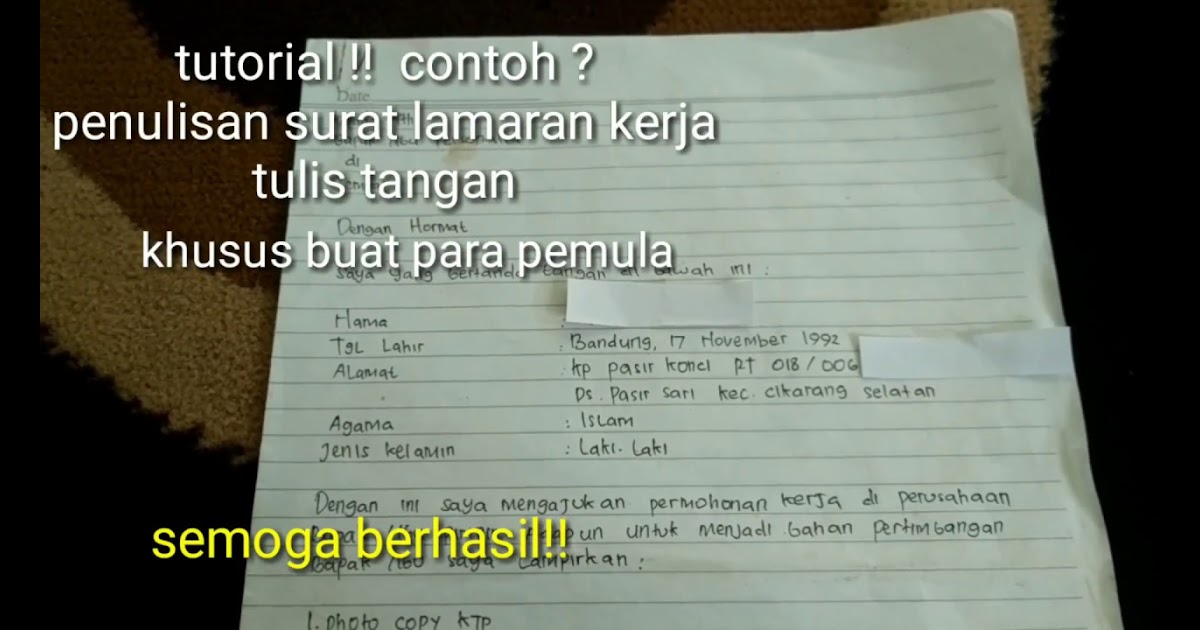 tutorial !! contoh ?
penulisan surat lamaran kerja
tulis tangan
khusus buat para pemula
Date
di
Dengan Hormat
saya yang bertanda tangan di bawah ini :
Nama :
Tgl Lahir : Bandung, 17 November 1992
Alamat : kp pasir konci RT 018 / 006
Ds. Pasir sari kec. cikarang selatan
Agama : Islam
Jenis kelamin : Laki-Laki
Dengan ini saya mengajukan permohonan kerja di perusahaan
semoga berhasil!!
untuk menjadi bahan pertimbangan
Bapak /Ibu saya Lampirkan :
1. photo copy KTP